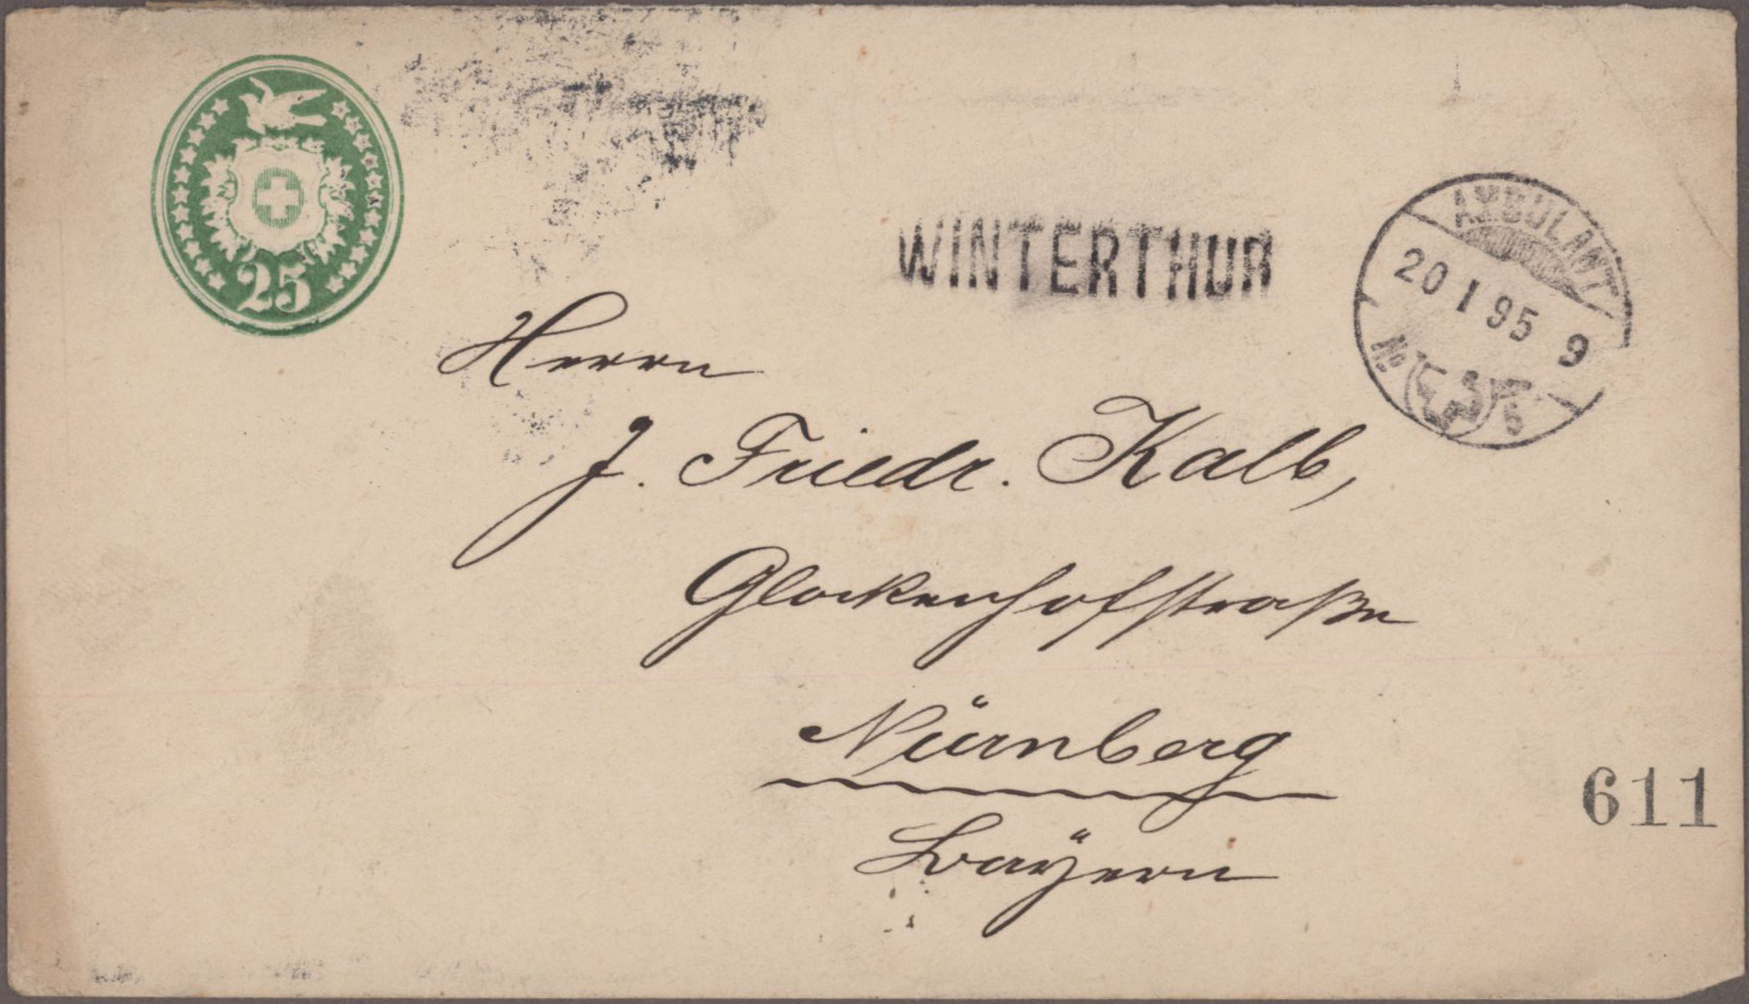 25
WINTERTHUR
AMBULANT
20 I 95 9
No
Herrn
J. Friedr. Kalb,
Glockenhofstraße
Nürnberg
Bayern
611